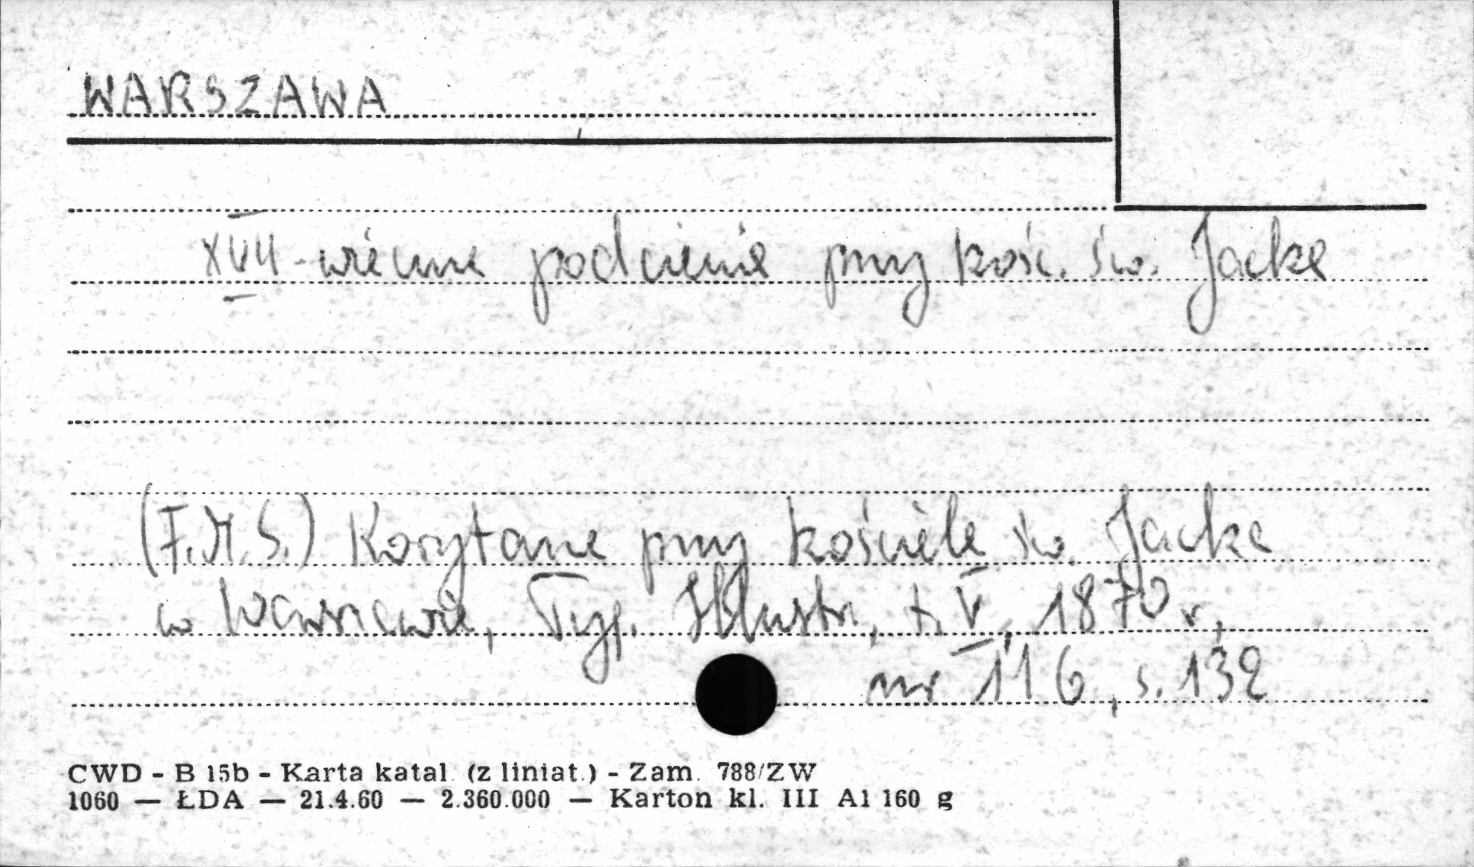 WARSZAWA
XVII-wieczne podcienie przy kość. św. Jacka
(F.M.S.) Korytarze przy kościele św. Jacka
w Warszawie, Tyg. Illustr., t. V, 1870 r.,
nr 116, s. 132
CWD - B 15b - Karta katal. (z liniat.) - Zam. 788/ZW
1060 — ŁDA — 21.4.60 — 2.360.000 — Karton kl. III A1 160 g